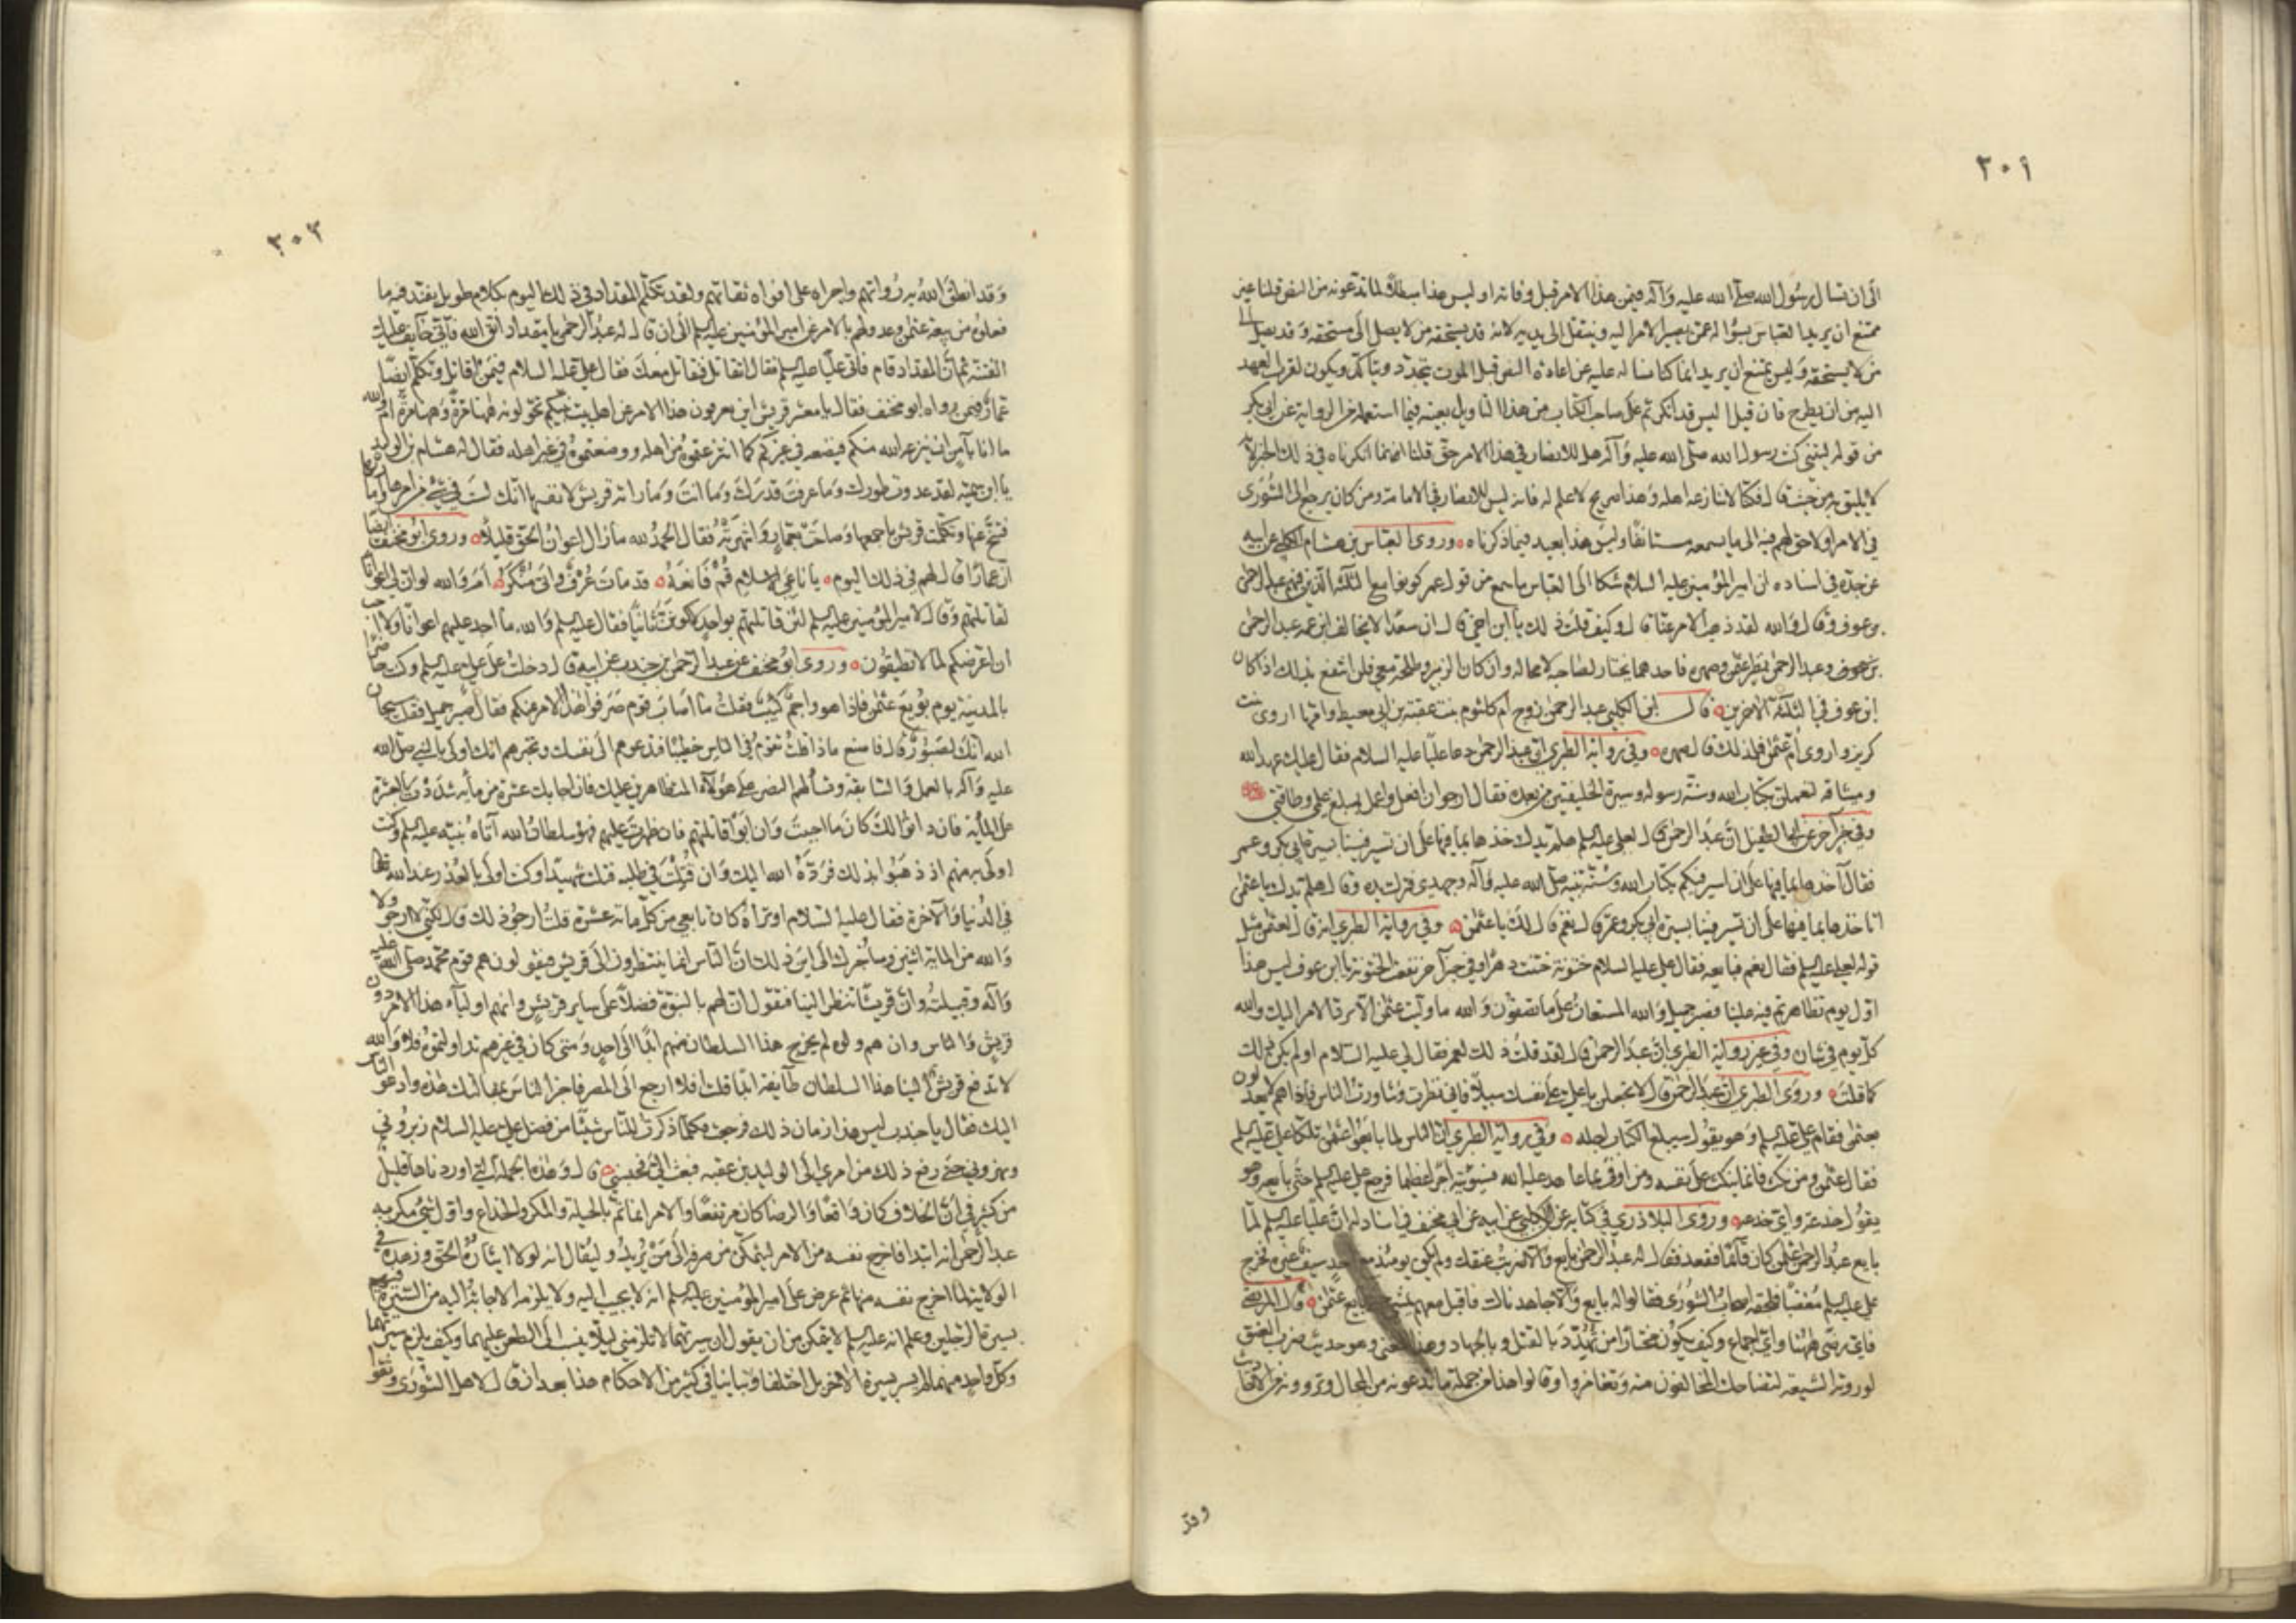 ٣٠٢
الى ان نسال رسول الله صلى الله عليه وآله فيمن هذا الامر قبل وفاته او ليس هذا مبطلا لما تدعونه من النص قلنا غير
ممتنع ان يريد العباس بسؤاله عمن يصير الامر اليه وينتقل الى يديه لانه قد يستحقه من لا يصل الى مستحقه وقد يصل الى
من لا يستحقه وليس يمتنع ان يريد انما كنا سالناه عن اعادة النص قبل الموت ليتجدد ويتأكد ويكون لقرب العهد
اليه من ان يطرح فان قيل اليس قد انكرتم على صاحب الكتاب من هذا التأويل بعينه فيما استعمله من الرواية عن ابى بكر
من قوله ليتني كنت رسول الله صلى الله عليه وآله هل للانصار في هذا الامر حق قلنا انما انكرناه في ذلك الخبر لانه
لا يليق به من حيث قال فكنا لا ننازعه اهله وهذا صريح لا علم له فانه ليس للانصار في الامامة ومن كان يرجع الى الشورى
في الامر اولا حق لهم فيه الى ما يسمعه مستأنفا وليس هذا بعيد فيما ذكرناه ه وروى العباس بن هشام الكلبي عن ابيه
عن جده في اسناده ان امير المؤمنين عليه السلام شكا الى العباس ما سمع من قول عمر كونوا مع الثلثة الذين فيهم عبد الرحمن
بن عوف وقال والله لقد ذهب الامر عنا قال وكيف قلت ذلك يا ابن اخي قال ان سعدا لا يخالف ابن عمه عبد الرحمن
بن عوف وعبد الرحمن نظير عثمن وصهره فاحدهما يختار لصاحبه لا محاله وان كان الزبير وطلحة معي فلن انتفع بذلك اذا كان
ابن عوف في الثلثة الاخرين ه قال ابن الكلبي عبد الرحمن زوج ام كلثوم بنت عقبة بن ابي معيط وامها اروى بنت
كريز واروى ام عثمن فلذلك قال صهره ه وفي رواية الطبري ان عبد الرحمن دعا عليا عليه السلام فقال عليك عهد الله
وميثاقه لتعملن بكتاب الله وسنة رسوله وسيرة الخليفتين من بعده فقال ارجو ان افعل واعمل بمبلغ علمي وطاقتي
وفي خبر آخر عن ابي الطفيل ان عبد الرحمن قال لعلي عليه السلم هلم يدك خذها بما فيها على ان تسير فينا بسيرة ابي بكر وعمر
فقال آخذها بما فيها على ان اسير فيكم بكتاب الله وسنة نبيه صلى الله عليه وآله وجهدي فترك يده وقال هلم يدك يا عثمن
اتاخذها بما فيها على ان تسير فينا بسيرة ابي بكر وعمر قال نعم قال هي لك يا عثمن ه وفي رواية الطبري انه قال لعثمن مثل
قوله لعلي عليه السلم فقال نعم فبايعه فقال علي عليه السلام ختونة حنت دهرا وفي خبر آخر نفعت الختونة يا ابن عوف ليس هذا
اول يوم تظاهرتم فيه علينا فصبر جميل والله المستعان على ما تصفون والله ما وليت عثمن الا ليرد الامر اليك والله
كل يوم في شان وفي غير رواية الطبري ان عبد الرحمن قال لقد قلت ذلك لعمر فقال لي عليه السلام اولم يكن ذلك
كما قلت ه وروى الطبري ان عبد الرحمن قال لا تجعلن يا علي على نفسك سبيلا فاني نظرت وشاورت الناس فاذا هم لا يعدلون
بعثمن فقام علي عليه السلم وهو يقول سيبلغ الكتاب اجله ه وفي رواية الطبري ان الناس لما بايعوا عثمن تلكأ علي عليه السلم
فقال عثمن ومن نكث فانما ينكث على نفسه ومن اوفى بما عاهد عليه الله فسيؤتيه اجرا عظيما فرجع علي عليه السلم حتى بايعه وهو
يقول خدعة واي خدعه ه وروى البلاذري في كتابه عن ابن الكلبي عن ابيه عن ابي مخنف في اسناد له ان عليا عليه السلم لما
بايع عبد الرحمن عثمن كان قائما فقعد فقال له عبد الرحمن بايع والا ضربت عنقك ولم يكن يومئذ مع احد سيف غيره فخرج
علي عليه السلم مغضبا فلحقه اصحاب الشورى فقالوا له بايع والا جاهدناك فاقبل معهم يمشي حتى بايع عثمن ه قال المرتضى
فاي رضى ههنا واي اجماع وكيف يكون مختارا من تهدد بالقتل وبالجهاد وهذا المعنى وهو حديث ضرب العنق
لو روته الشيعة لتضاحك المخالفون منه وتغامزوا وقالوا هذا من جملة ما تدعونه من المحال وتروونه من الاحاديث
وقد
٣٠٣
وقد انطق الله به رواتهم واجراه على افواه ثقاتهم ولقد تكلم المقداد في ذلك اليوم بكلام طويل يفند فيه ما
فعلوه من بيعة عثمن وعدولهم بالامر عن امير المؤمنين عليه السلم الى ان قال له عبد الرحمن يا مقداد اتق الله فاني خائف عليك
الفتنة ثم ان المقداد قام فاتى عليا عليه السلم فقال اتقاتل فنقاتل معك فقال علي عليه السلام فبمن اقاتل وتكلم ايضا
عمار فيمن رواه ابو مخنف فقال يا معشر قريش اين تصرفون هذا الامر عن اهل بيت نبيكم تحولونه ههنا مرة وههنا مرة اما والله
ما انا بآمن ان ينزعه الله منكم فيضعه في غيركم كما انتزعتموه من اهله ووضعتموه في غير اهله فقال له هشام بن الوليد
يا ابن سمية لقد عدوت طورك وما عرفت قدرك وما انت وما رات قريش لانفسها انك لست في شيء من امرها وامارتها
فتنح عنها وتكلمت قريش باجمعها وصاحت بعمار وانتهرته فقال الحمد لله ما زال اعوان الحق قليلا ه وروى ابو مخنف ايضا
ان عمارا قال لهم في ذلك اليوم ه يا ناعي الاسلام قم فانعه ه قد مات عرف واتى منكر ه اما والله لو ان لي اعوانا
لقاتلتهم وقال لامير المؤمنين عليه السلم لئن قاتلتهم بواحد لاكونن ثانيا فقال عليه السلم والله ما اجد عليهم اعوانا ولا احب
ان اعرضكم لما لا تطيقون ه وروى ابو مخنف عن عبد الرحمن بن جندب عن ابيه قال دخلت على علي عليه السلم وكنت حاضرا
بالمدينة يوم بويع عثمن فاذا هو واجم كئيب فقلت ما اصاب قوم صرفوا هذا الامر عنكم فقال صبر جميل فقلت سبحان
الله انك لصبور قال فاصنع ماذا قلت تقوم في الناس خطيبا فتدعوهم الى نفسك وتخبرهم انك اولى بالنبي صلى الله
عليه وآله بالعمل والسابقة وتسألهم النصر على هؤلاء المتظاهرين عليك فان اجابك عشرة من مائة شددت بالعشرة
على المائة فان دانوا لك كان ما احببت وان ابوا قاتلتهم فان ظهرت عليهم فهو سلطان الله آتاه نبيه عليه السلم وكنت
اولى به منهم اذ ذهبوا بذلك فرده الله اليك وان قتلت في طلبه قتلت شهيدا وكنت اولى بالعذر عند الله
في الدنيا والآخرة فقال عليه السلام اوتراه كان تابعي من كل مائة عشرة قلت ارجو ذلك قال لكني لا ارجو ولا
والله من المائة اثنين وساخبرك الى اين ذلك ان الناس انما ينتظرون الى قريش فيقولون هم قوم محمد صلى الله عليه
وآله وقبيلته وان قريشا تنظر الينا فتقول ان لهم بالنبوة فضلا على ساير قريش وانهم اولياء هذا الامر دون
قريش والناس وان هم ولوه لم يخرج هذا السلطان منهم ابدا الى احد ومتى كان في غيرهم تداولتموه فلا والله
لا تدفع قريش الينا هذا السلطان طائفة ابدا قلت افلا ارجع الى المصر فاخبر الناس بمقالتك هذه وادعو الناس
اليك فقال يا جندب ليس هذا زمان ذلك فرجعت فكلما ذكرت للناس شيئا من فضل علي عليه السلام زبروني
ونهروني حتى رفع ذلك من امري الى الوليد بن عقبه فبعث الي فحبسني ه قال وهذه الجملة التي اوردناها قليل
من كثير في ان الخلاف كان واقعا والرضا كان مرتفعا والامر انما تم بالحيلة والمكر والخداع واول شيء مكر به
عبد الرحمن انه ابتدا فاخرج نفسه من الامر ليتمكن من صرفه الى من يريد وليقال انه لولا ايثاره الحق وزهده في
الولاية لما اخرج نفسه منها ثم عرض على امير المؤمنين عليه السلم انه لا يجيب اليه ولا يلزمه الاجابة اليه من السيرة فيهم
بسيرة الرجلين وعلم انه عليه السلم لا يتمكن من ان يقول ان سيرتهما لا تلزمني لئلا ينسب الى الطعن عليهما وكيف يلزم سيرتهما
وكل واحد منهما لم يسر بسيرة الاخر بل اختلفا وتباينا في كثير من الاحكام هذا بعد ان قال لاهل الشورى وثقوا